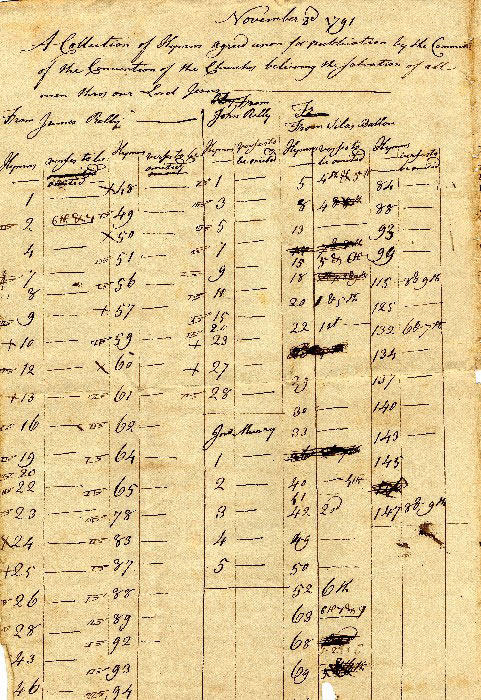 November 3d 1791
A Collection of Hymns agreed upon for publication by the Committee
of the Convention of the Churches believing the salvation of all
men thro' our Lord Jesus
From James Relly
Hymns verses to be omitted Hymns verses to be omitted
1 48
2 49
4 50
7 51
8 56
9 57
10 59
12 60
13 61
16 62
19 64
20
22 65
23 78
24 83
25 87
26 88
28 89
43 92
46 93
94
From
John Relly
Hymns verses to be omitted
1
3
5
7
9
11
15
20
23
27
28
Jno. Murray
1
2
3
4
5
From Silas Ballou
Hymns verses to be omitted Hymns verses to be omitted
5 4th & 5th
8
13
15 5 & 6th
18
20 1 & 5th
22 1st
29
30
33
40
41
42 2d
49
50
52 6th
63
68
69
84
88
93
99
115 8 & 9th
125
132 6 & 7th
134
137
140
143
145
147 8 & 9th